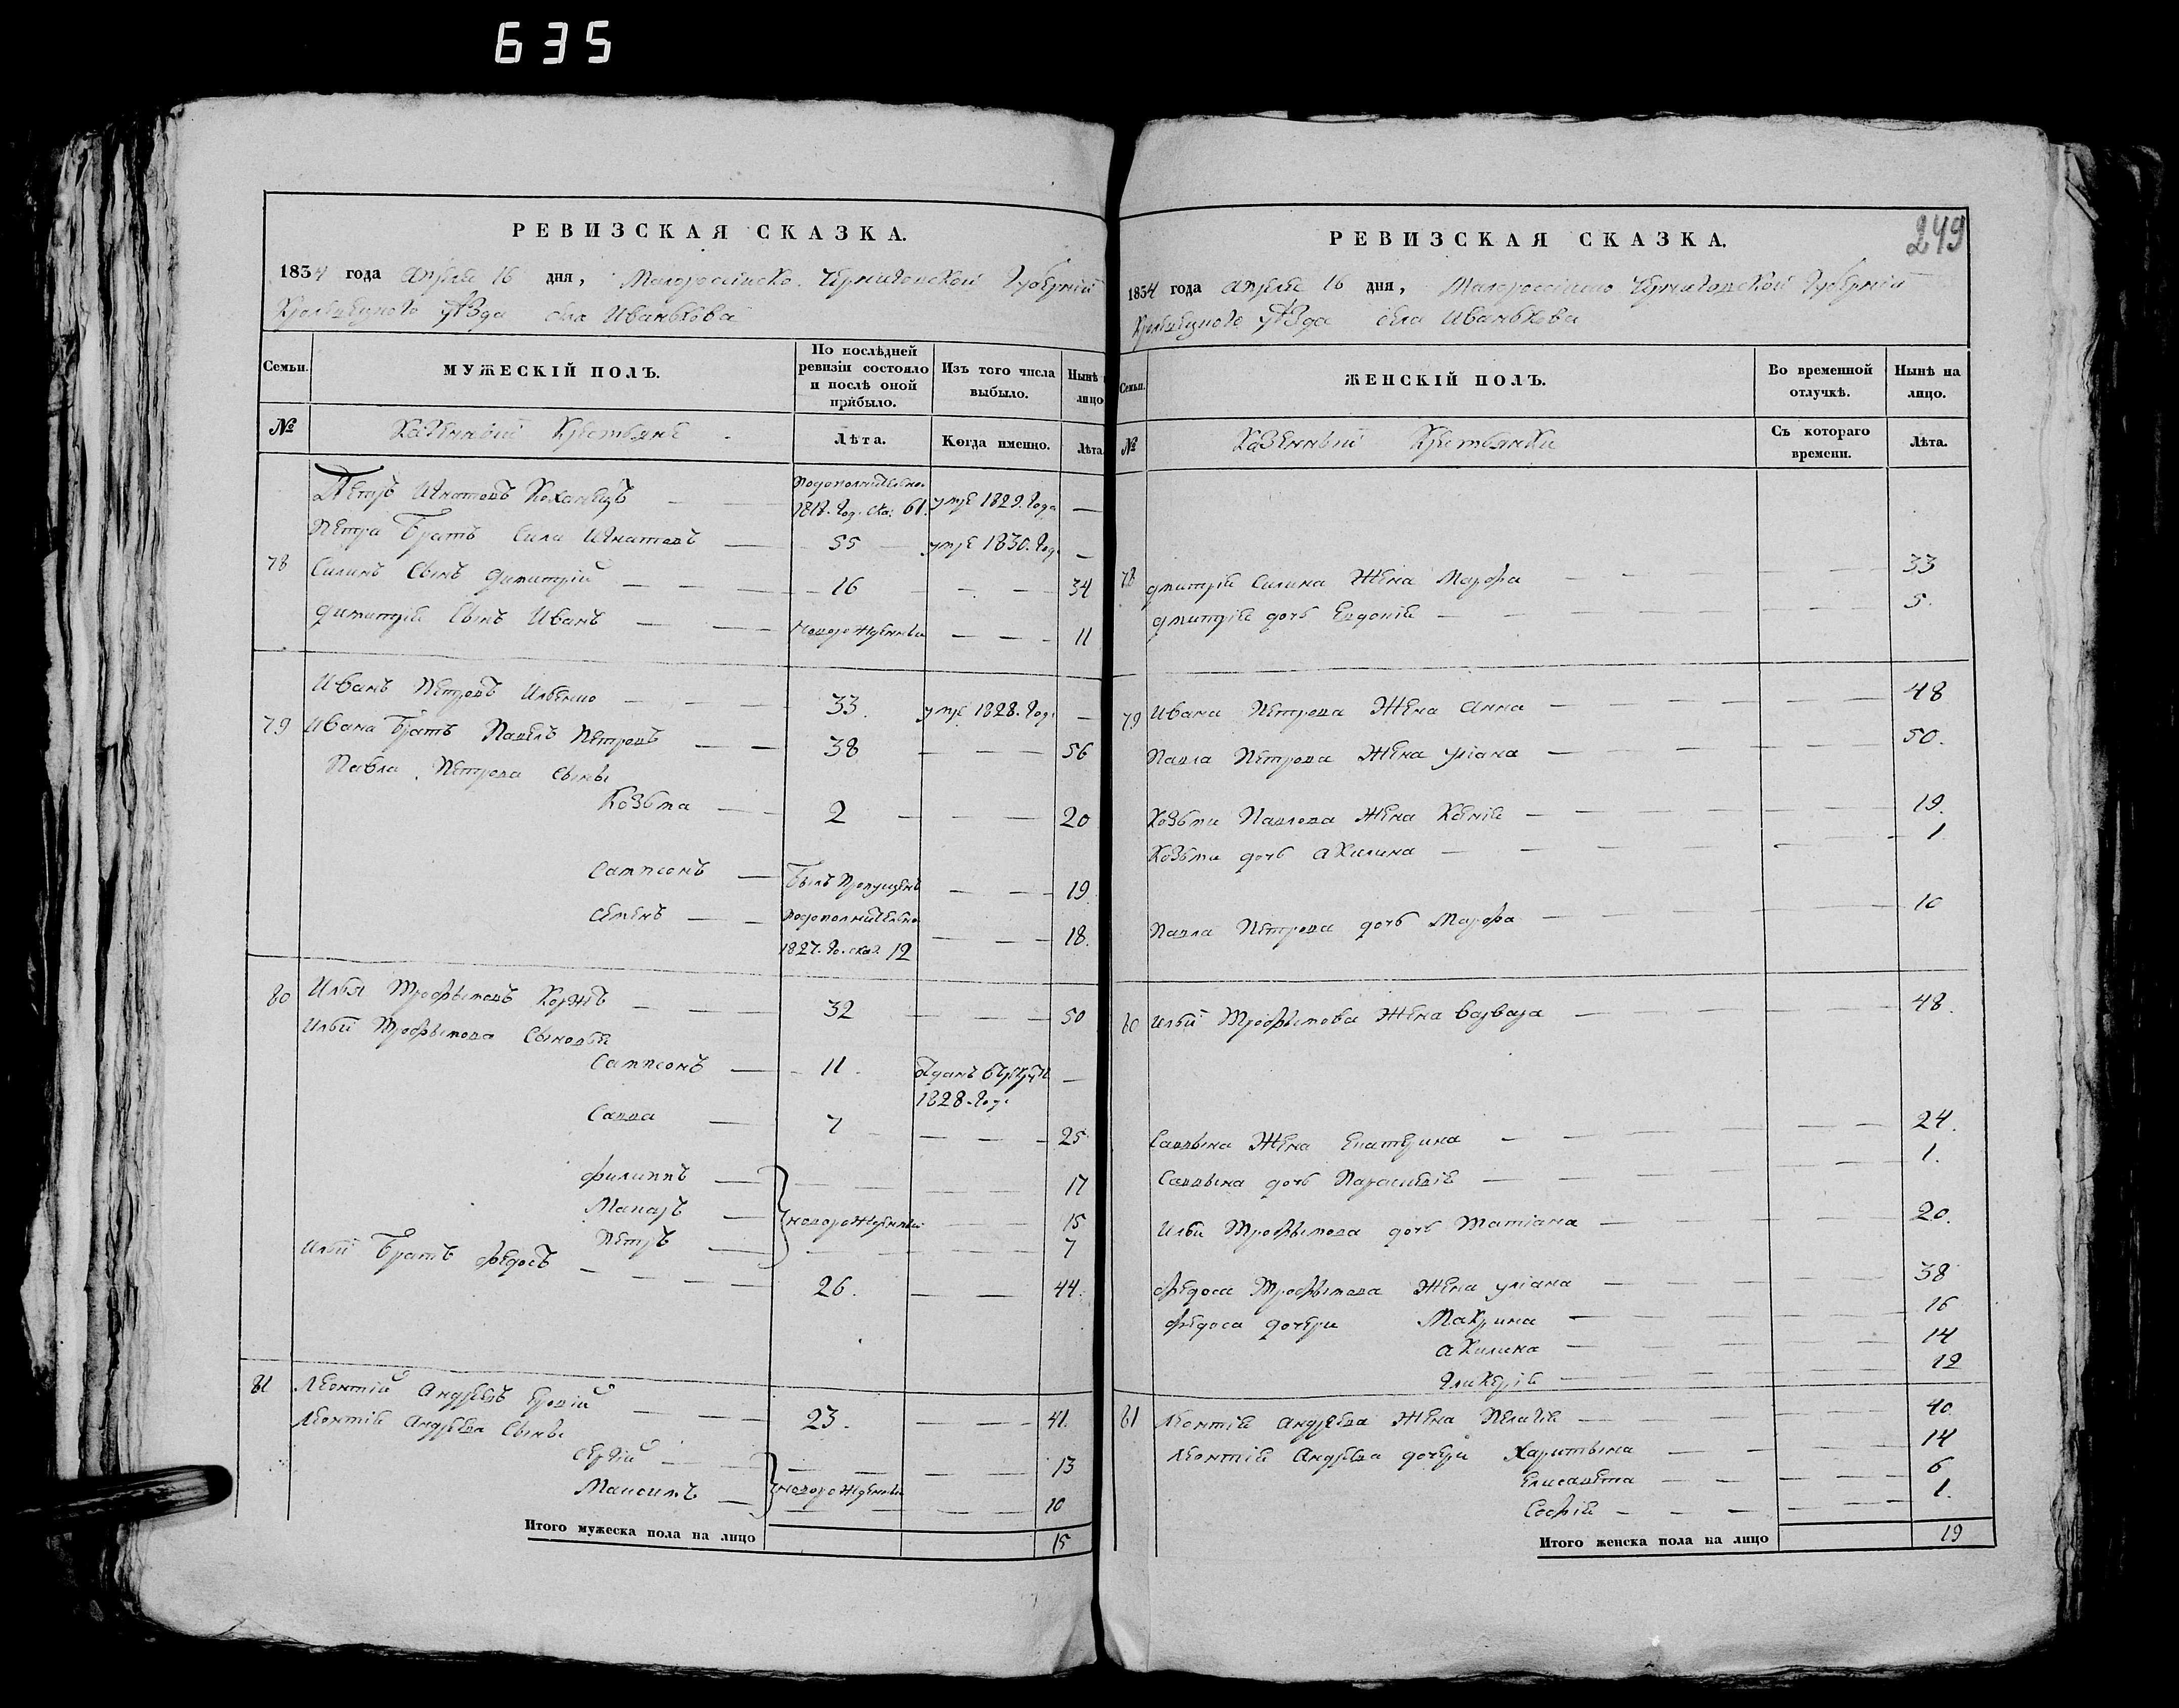 635
РЕВИЗСКАЯ СКАЗКА.
1834 года апреля 16 дня, Малоросійско Черниговской Губерній
Кролевецкого уѣзда села Иванькова
Семьи.
МУЖЕСКІЙ ПОЛЪ.
По послѣдней ревизіи состояло и послѣ оной прибыло.
Изъ того числа выбыло.
Нынѣ лицо
№
Казенный Крестьяне
Лѣта.
Когда именно.
Лѣта.
Петръ Игнатовъ подополнительно 1818. год. ска: 61. умре 1829. года —
Петра братъ Сила Игнатовъ — 55 — умре 1830. год. —
78 Силинъ сынъ Димитрій — — 16 — — — 34
Димитрія сынъ Иванъ — — новорожденный — — — 11
Иванъ Петровъ Ильенко — — — 33. умре 1828. год. —
79 Ивана братъ Павелъ Петровъ — — 38 — — — 56
Павла Петрова сыны
Козьма — — 2 — — — 20
Сампсонъ — былъ пропущенъ — — — 19
Семенъ — — подополнительно 1827. го. ска. 12 — — — 18.
80 Илья Трофымовъ Коржъ — — — 32 — — — 50
Ильи Трофымова сыновья
Сампсонъ — 11. отданъ врекруты 1828. год. —
Савва — 7 — — — 25
Филиппъ — — — — 17
Макаръ — новорожденный — — 15
Петръ — — — — 7
Ильи братъ Федосъ — — — 26. — — 44.
81 Леонтій Андреевъ — — — 23. — — — 41.
Леонтія Андреева сыны
Сергій — — — — — 13
Максимъ — новорожденный — — 10
Итого мужеска пола на лицо 15
249
РЕВИЗСКАЯ СКАЗКА.
1834 года апреля 16 дня, Малоросійско Черниговской Губерній
Кролевецкого уѣзда села Иванькова
Семьи.
ЖЕНСКІЙ ПОЛЪ.
Во временной отлучкѣ.
Нынѣ на лицо.
№
Казенный Крестьянки
Съ котораго времени.
Лѣта.
78 Дмитрія Силина жена Марфа — — — 33
Дмитрія дочь Евдокія — — — 5.
79 Ивана Петрова жена Анна — — — 48
Павла Петрова жена Уліана — — — 50.
Козьми Павлова жена Ксенія — — — 19.
Козьми дочь Акилина — — — 1
Павла Петрова дочь Марфа — — — 10
80 Ильи Трофымова жена Варвара — — — 48.
Саввына жена Екатерина — — — 24.
Саввына дочь Параскевія — — — 1.
Ильи Трофымова дочь Татіана — — — 20.
Федоса Трофымова жена Уліана — — — 38
Федоса дочери Макрина — — — 16
Акилина — — — 14
Гликерія — — — 12
81 Леонтія Андреева жена Пелагія — — — 40
Леонтія Андреева дочери Харитына — — — 14
Елисавета — — — 6
Софія — — — 1.
Итого женска пола на лицо 19